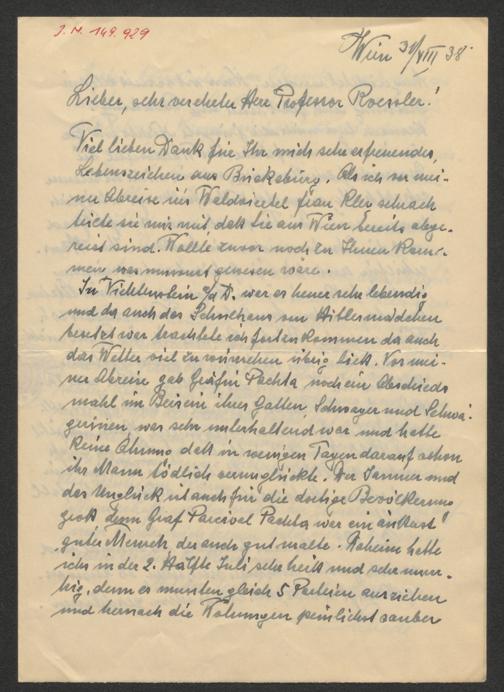 J. N. 149.929
Wien 31/VIII 38.
Lieber, sehr verehrter Herr Professor Roessler!
Viel lieben Dank für Ihr mich sehr erfreuendes,
Lebenszeichen aus Bückeburg. Als ich vor mei-
ner Abreise ins Waldviertel Frau
teilte sie mir mit, daß Sie aus Wien bereits abge-
reist sind. Wollte zuvor noch zu Ihnen kom-
men was umsonst gewesen wäre.
In Vichtenstein a/d D. war es heuer sehr lebendig
und da auch das Schulhaus von Hitlermädchen
besetzt war trachtete ich fortzukommen da auch
das Wetter viel zu wünschen übrig ließ. Vor mei-
ner Abreise gab Gräfin Pachta noch ein Abschieds
mahl im Beisein ihres Gatten, Schwager und Schwä-
gerinnen, was sehr unterhaltend war und hatte
keine Ahnung daß in wenigen Tagen darauf schon
ihr Mann tödlich verunglückte. Der Jammer und
das Unglück ist auch für die dortige Bevölkerung
groß denn Graf Parcival Pachta war ein äußerst
guter Mensch der auch gut malte. Daheim hatte
ichs in der 2. Hälfte Juli sehr heiß und sehr unru-
hig, denn es mußten gleich 5 Parteien ausziehen
und hernach die Wohnungen peinlichst sauber